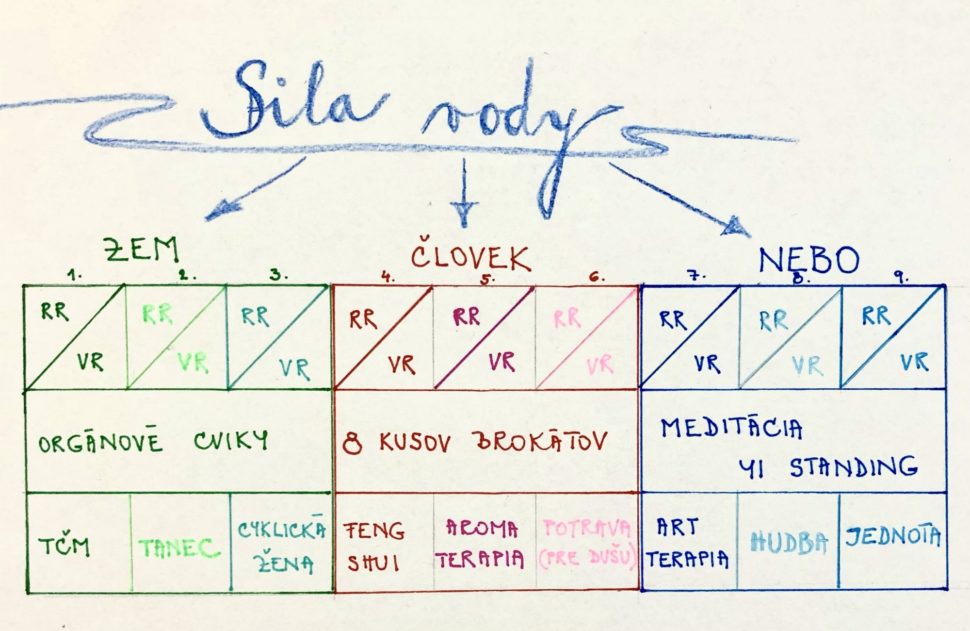 Sila vody
ZEM
ČLOVEK
NEBO
1. 2. 3. 4. 5. 6. 7. 8. 9.
RR RR RR RR RR RR RR RR RR
VR VR VR VR VR VR VR VR VR
ORGÁNOVÉ CVIKY
8 KUSOV BROKÁTOV
MEDITÁCIA
YI STANDING
TČM
TANEC
CYKLICKÁ
ŽENA
FENG
SHUI
AROMA
TERAPIA
POTRAVA
(PRE DUŠU)
ART
TERAPIA
HUDBA
JEDNOTA